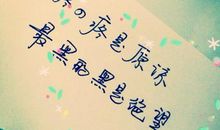 の疼是原谅
最黑的黑是绝望